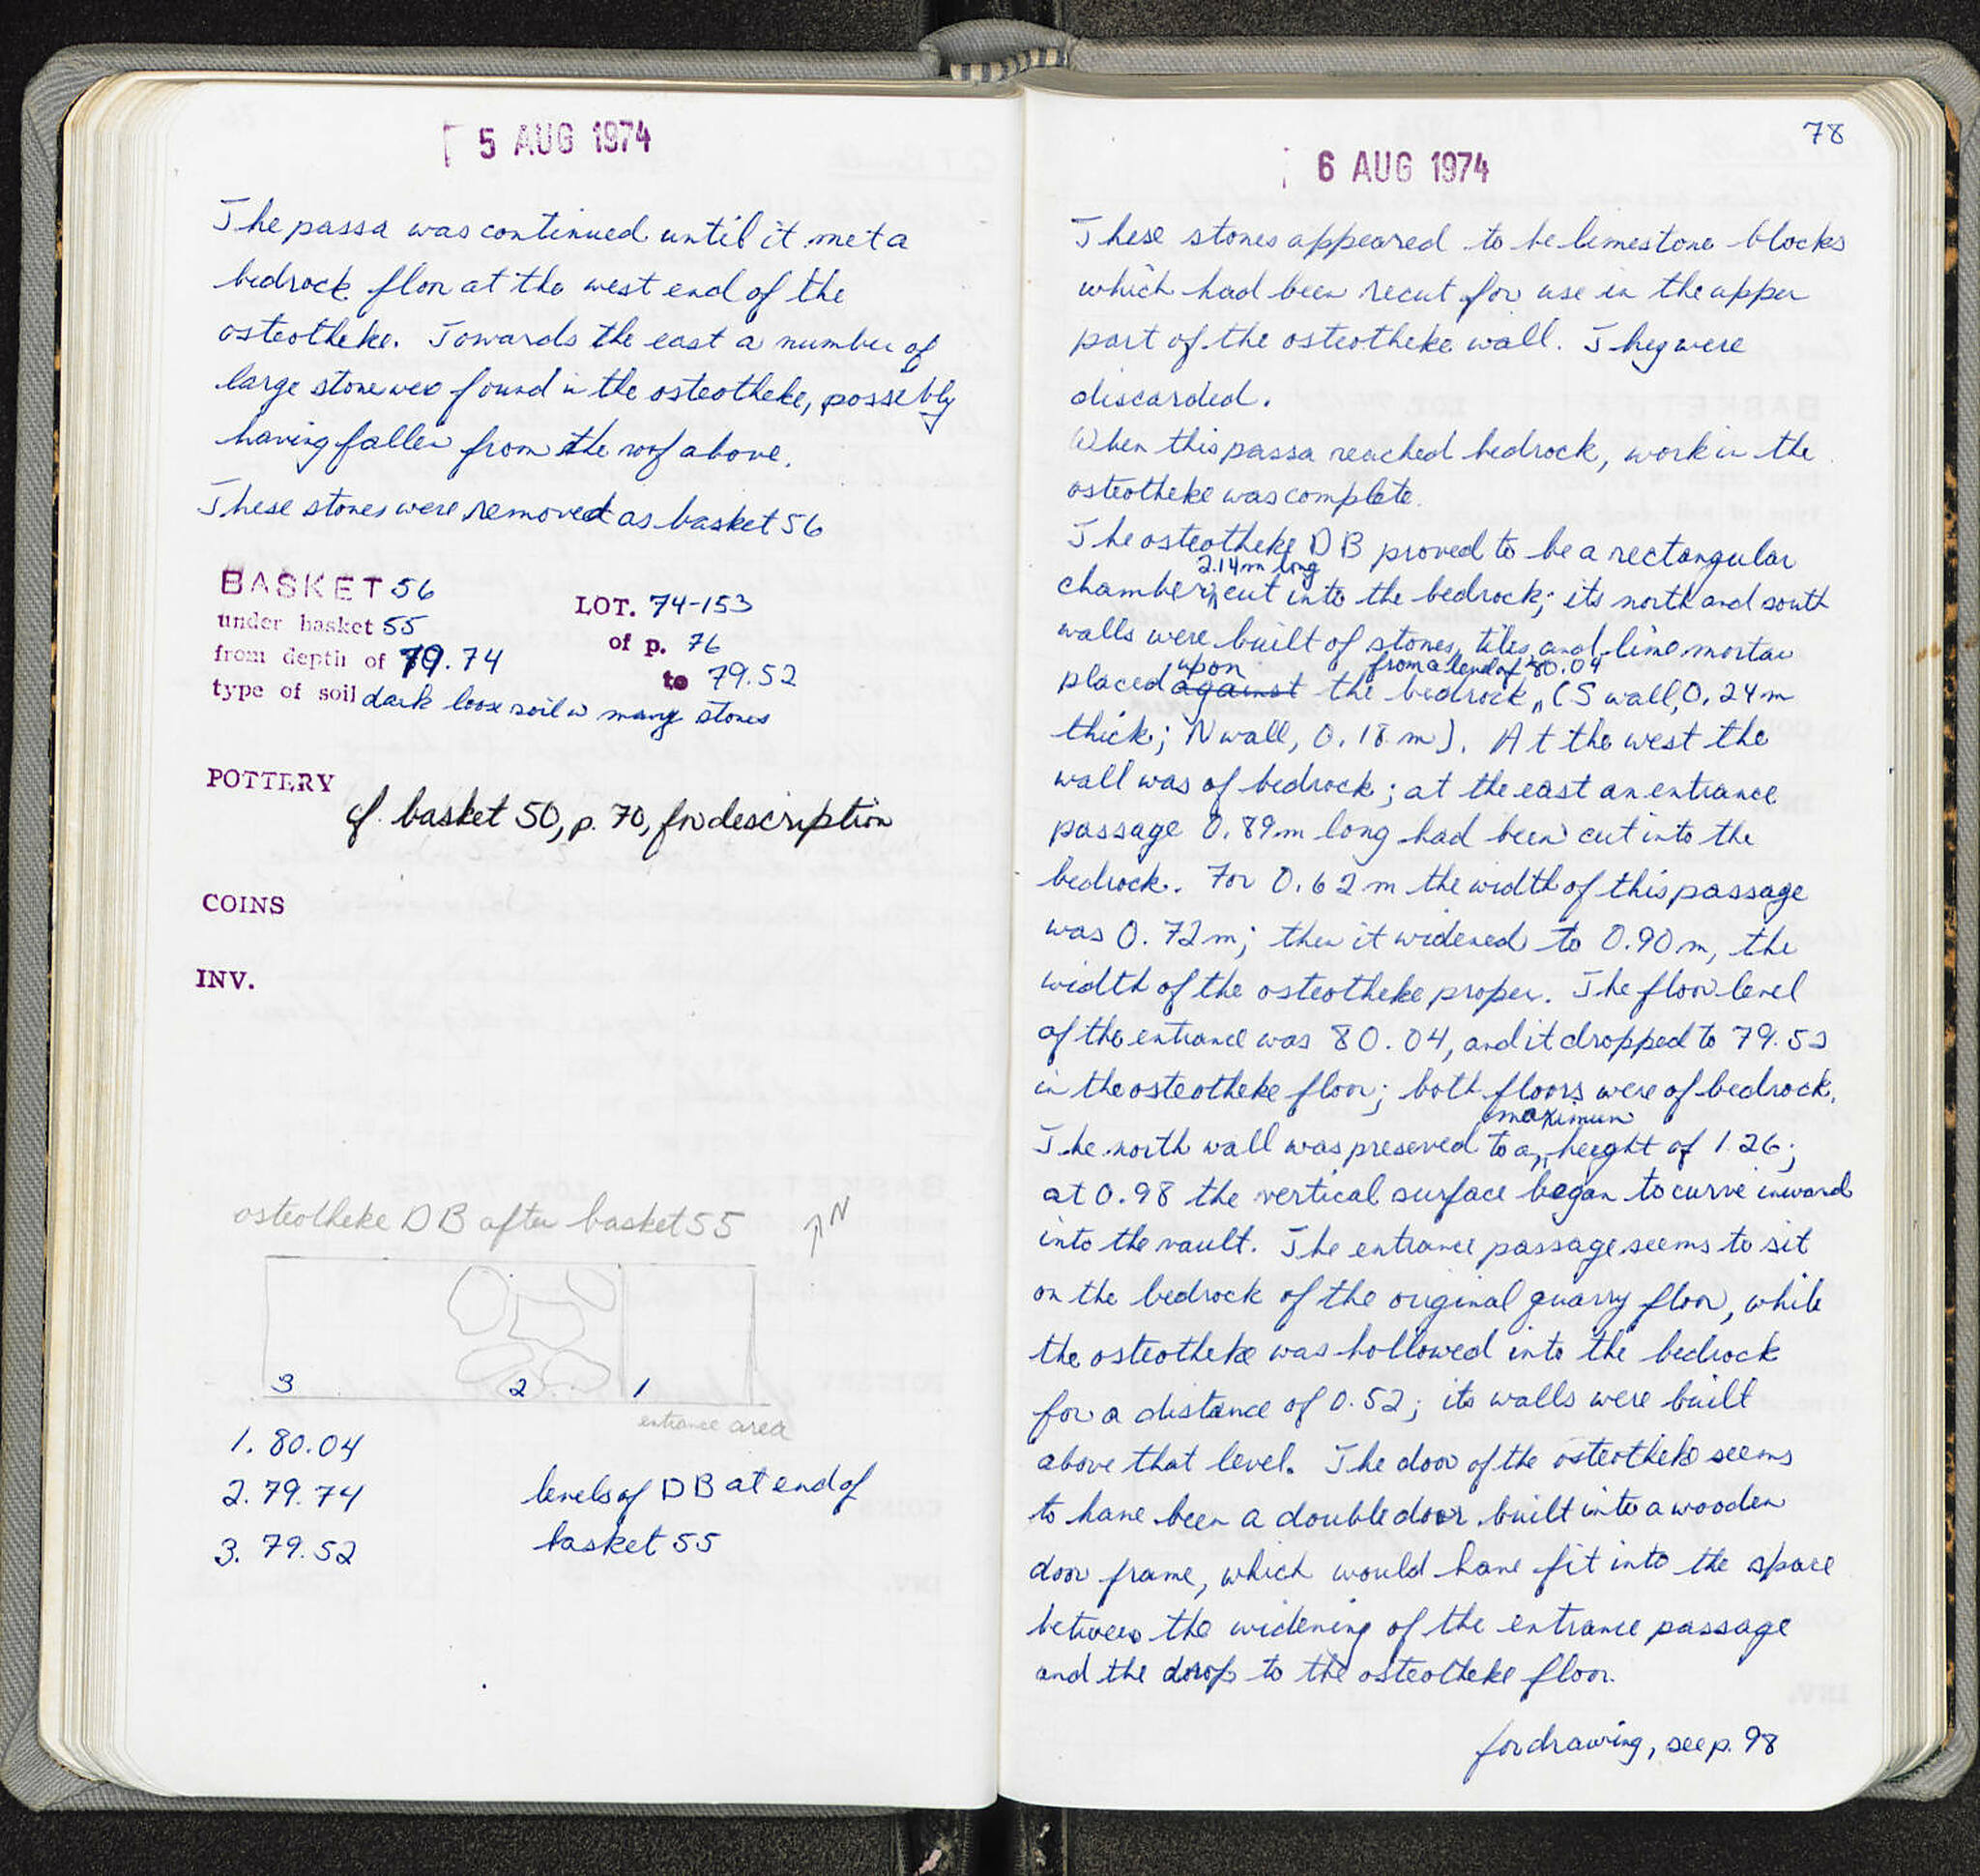 5 AUG 1974
The passa was continued until it met a
bedrock floor at the west end of the
osteotheke. Towards the east a number of
large stones were found in the osteotheke, possibly
having fallen from the roof above.
These stones were removed as basket 56
BASKET 56
LOT. 74-153
under basket 55
of p. 76
from depth of 79.74
to 79.52
type of soil dark loose soil w many stones
POTTERY
cf. basket 50, p. 70, for description
COINS
INV.
osteotheke DB after basket 55
N
3 2 1
entrance area
1. 80.04
2. 79.74
3. 79.52
levels of DB at end of
basket 55
78
6 AUG 1974
These stones appeared to be limestone blocks
which had been recut for use in the upper
part of the osteotheke wall. They were
discarded.
When this passa reached bedrock, work in the
osteotheke was complete.
The osteotheke DB proved to be a rectangular
2.14m long
chamber, cut into the bedrock; its north and south
walls were built of stones, tiles and lime mortar
upon from a level of 80.04
placed against the bedrock, (S wall, 0.24m
thick; N wall, 0.18 m). At the west the
wall was of bedrock; at the east an entrance
passage 0.89m long had been cut into the
bedrock. For 0.62 m the width of this passage
was 0.72m; then it widened to 0.90m, the
width of the osteotheke proper. The floor level
of the entrance was 80.04, and it dropped to 79.52
in the osteotheke floor; both floors were of bedrock.
maximum
The north wall was preserved to a height of 1.26;
at 0.98 the vertical surface began to curve inward
into the vault. The entrance passage seems to sit
on the bedrock of the original quarry floor, while
the osteotheke was hollowed into the bedrock
for a distance of 0.52; its walls were built
above that level. The door of the osteotheke seems
to have been a double door built into a wooden
door frame, which would have fit into the space
between the widening of the entrance passage
and the drop to the osteotheke floor.
for drawing, see p. 98